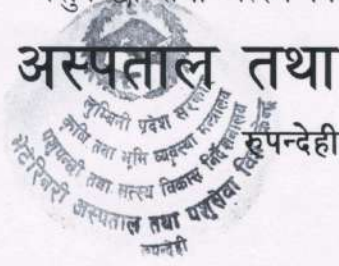 अस्पताल तथा
रुपन्देही
लुम्बिनी प्रदेश सरकार
कृषि तथा भूमि व्यवस्था मन्त्रालय
पशुपन्छी तथा मत्स्य विकास निर्देशनालय
भेटेरिनरी अस्पताल तथा पशुसेवा वि
रुपन्देही